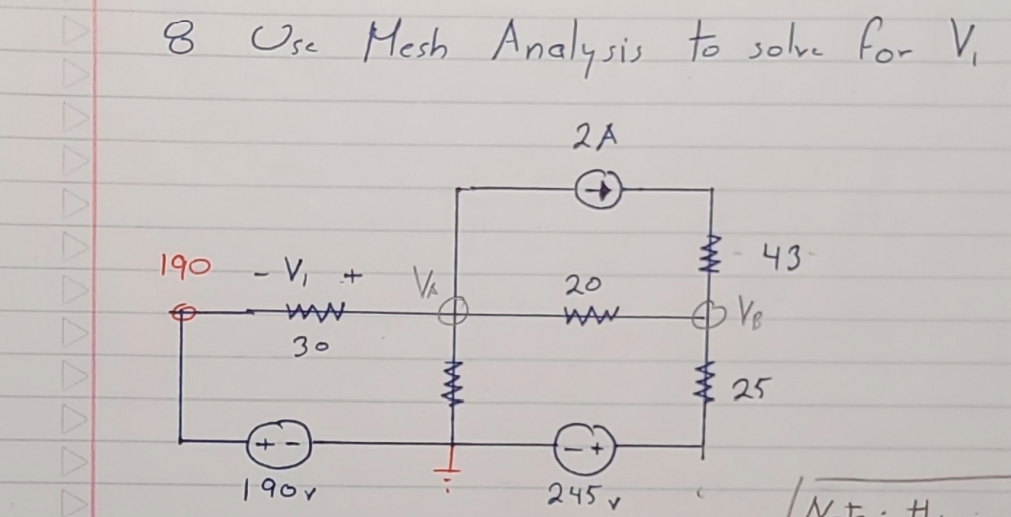 8 Use Mesh Analysis to solve for V₁
2A
43
190 - V₁ + VA 20 VB
30
25
+ - - +
190v 245v